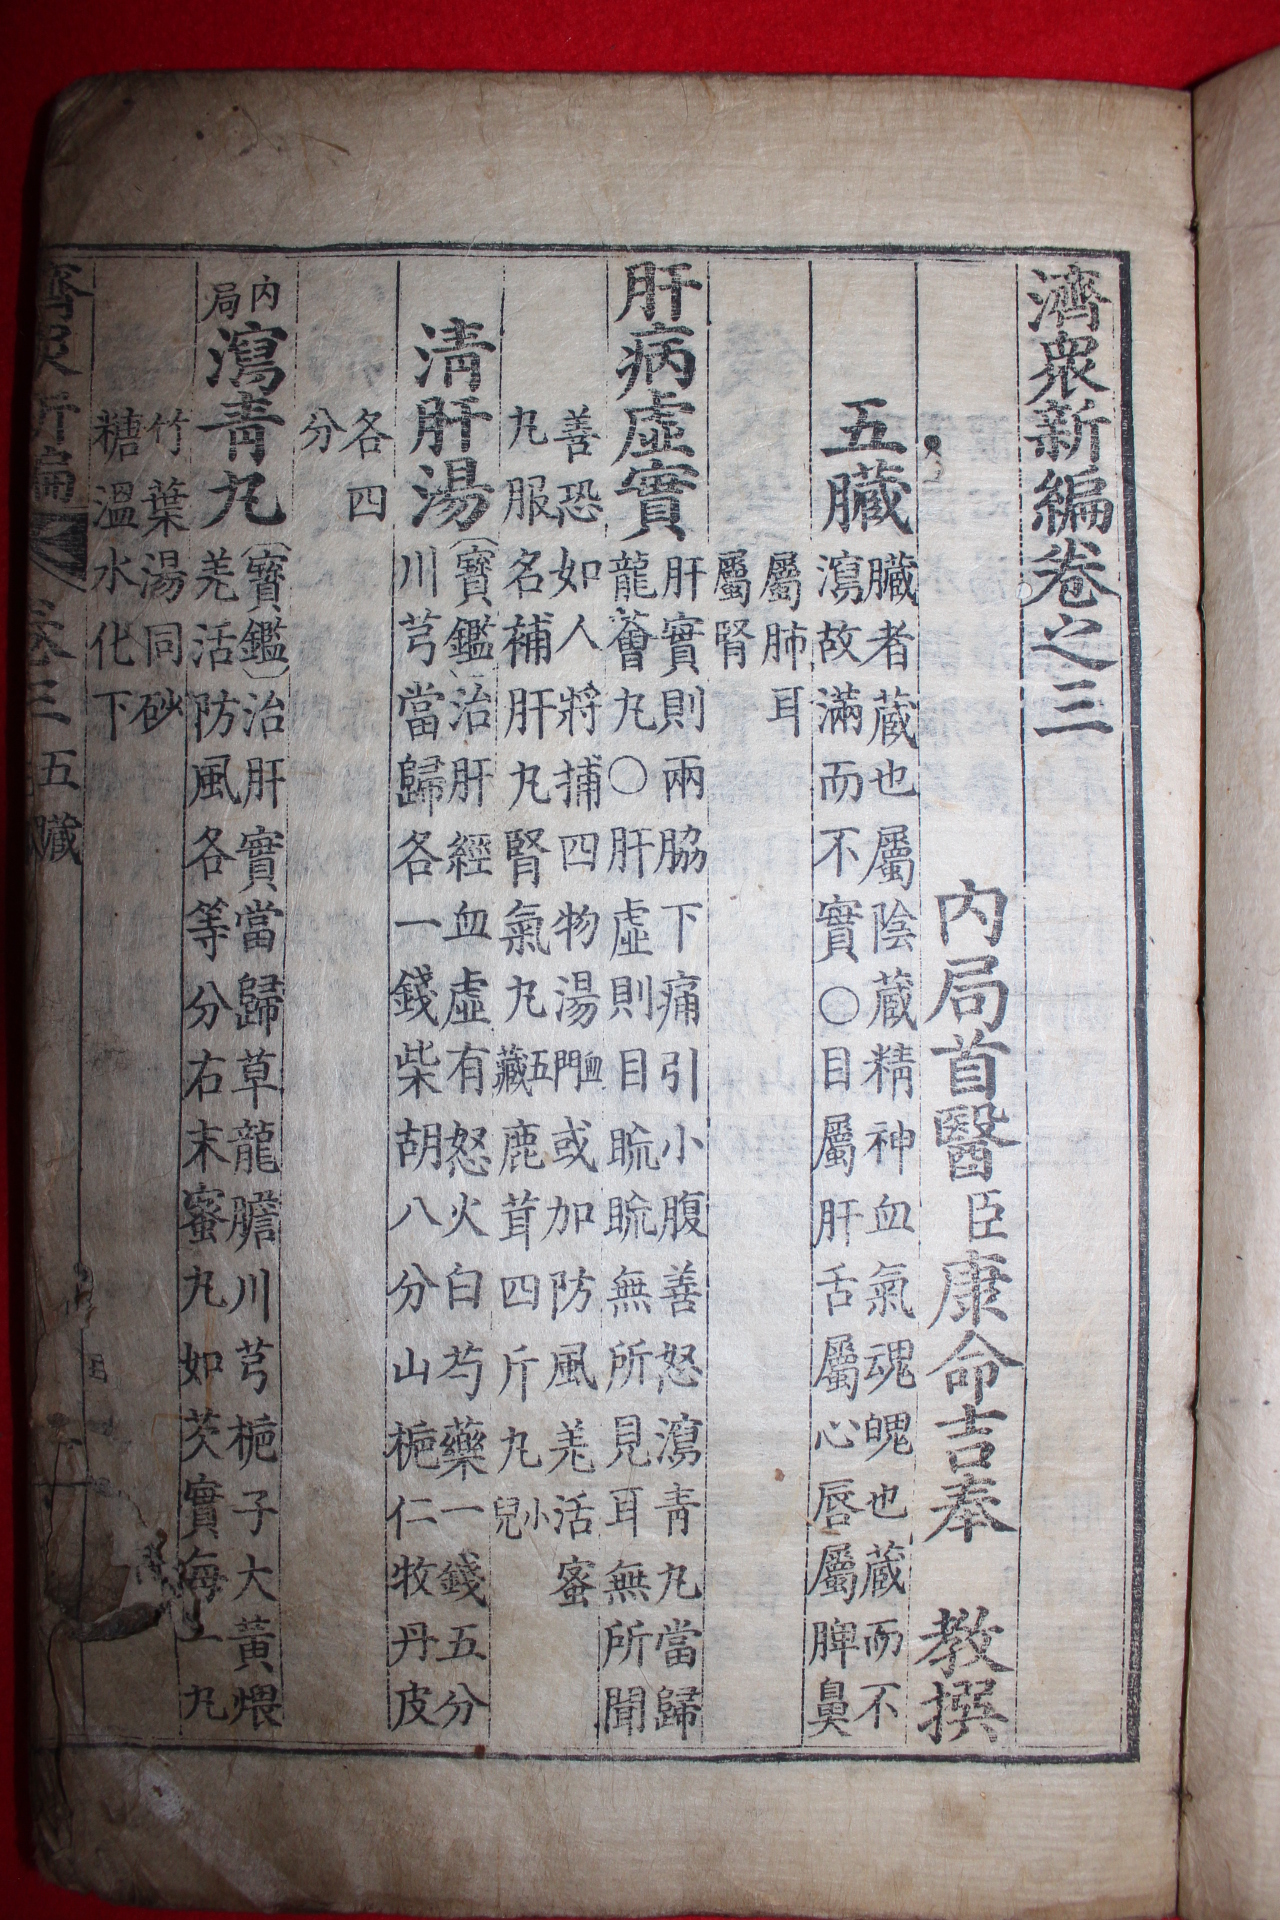 濟衆新編卷之三
內局首醫臣康命吉奉 教撰
五臟
臟者藏也屬陰藏精神血氣魂魄也藏而不
瀉故滿而不實○目屬肝舌屬心唇屬脾鼻
屬肺耳
屬腎
肝病虛實
肝實則兩脇下痛引小腹善怒瀉靑丸當歸
龍薈丸○肝虛則目䀮䀮無所見耳無所聞
善恐如人將捕四物湯血門或加防風羌活蜜
丸服名補肝丸腎氣丸五藏鹿茸四斤丸小兒
淸肝湯
(寶鑑)治肝經血虛有怒火白芍藥一錢五分
川芎當歸各一錢柴胡八分山梔仁牧丹皮
各四
分
內局
瀉靑丸
(寶鑑)治肝實當歸草龍膽川芎梔子大黃煨
羌活防風各等分右末蜜丸如芡實每一丸
竹葉湯同砂
糖溫水化下
濟衆新編 卷三 五臟